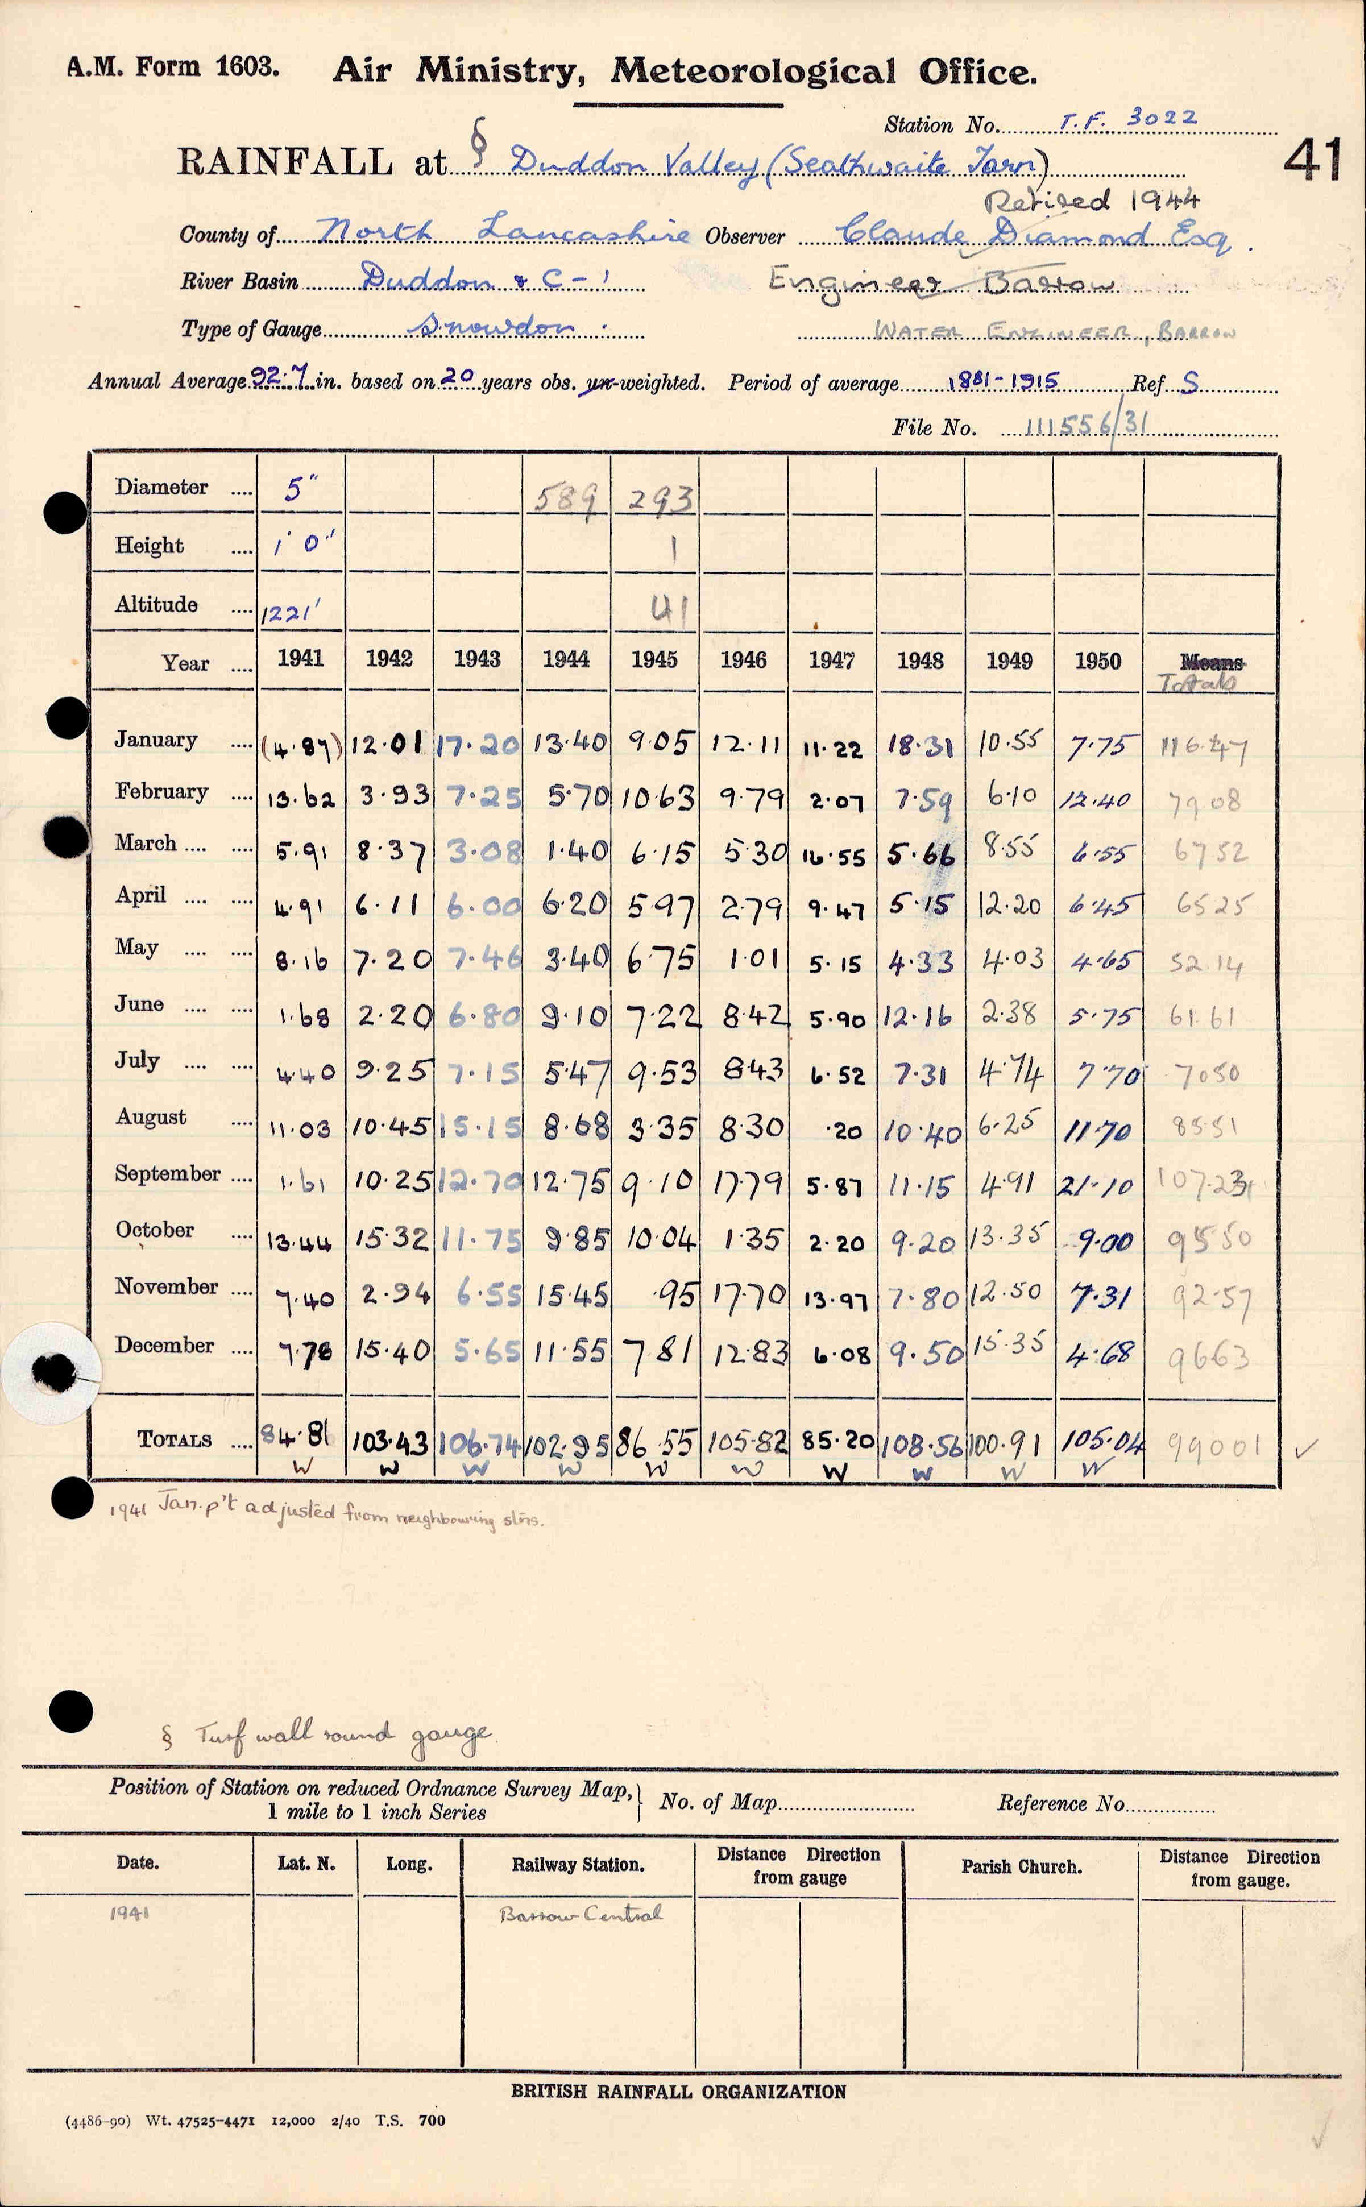 A.M. Form 1603. Air Ministry, Meteorological Office.
Station No. T.F. 3022
41
RAINFALL at § Duddon Valley (Seathwaite Tarn)
Retired 1944
County of North Lancashire Observer Claude Diamond Esq.
River Basin Duddon & C-1 Engineer Barrow
Type of Gauge Snowdon. WATER ENGINEER, BARROW
Annual Average 92.7 in. based on 20 years obs. un-weighted. Period of average 1881-1915 Ref S
File No. 111556/31
Diameter .... 5" 589 293
Height .... 1' 0" 1
Altitude .... 1221' 41
Year .... 1941 1942 1943 1944 1945 1946 1947 1948 1949 1950 Means
Totals
January .... (4.87) 12.01 17.20 13.40 9.05 12.11 11.22 18.31 10.55 7.75 116.47
February .... 13.62 3.93 7.25 5.70 10.63 9.79 2.07 7.59 6.10 12.40 79.08
March .... .... 5.91 8.37 3.08 1.40 6.15 5.30 16.55 5.66 8.55 6.55 67 52
April .... .... 4.91 6.11 6.00 6.20 5.97 2.79 9.47 5.15 12.20 6.45 65 25
May .... .... 8.16 7.20 7.46 3.40 6.75 1.01 5.15 4.33 4.03 4.65 52.14
June .... .... 1.68 2.20 6.80 9.10 7.22 8.42 5.90 12.16 2.38 5.75 61.61
July .... .... 4.40 9.25 7.15 5.47 9.53 8.43 6.52 7.31 4.74 7.70 70 50
August .... 11.03 10.45 15.15 8.68 3.35 8.30 .20 10.40 6.25 11.70 85.51
September .... 1.61 10.25 12.70 12.75 9.10 17.79 5.87 11.15 4.91 21.10 107.23
October .... 13.44 15.32 11.75 9.85 10.04 1.35 2.20 9.20 13.35 9.00 95 50
November .... 7.40 2.94 6.55 15.45 .95 17.70 13.97 7.80 12.50 7.31 92.57
December .... 7.78 15.40 5.65 11.55 7.81 12.83 6.08 9.50 15.35 4.68 96 63
TOTALS .... 84.81 103.43 106.74 102.95 86.55 105.82 85.20 108.56 100.91 105.04 990 01 ✓
W W W W W W W W W W
1941 Jan. p't adjusted from neighbouring stns.
§ Turf wall round gauge
Position of Station on reduced Ordnance Survey Map, } No. of Map Reference No.
1 mile to 1 inch Series
Date. Lat. N. Long. Railway Station. Distance from gauge Direction Parish Church. Distance from gauge. Direction
1941 Barrow Central
BRITISH RAINFALL ORGANIZATION
(4486-90) Wt. 47525-4471 12,000 2/40 T.S. 700